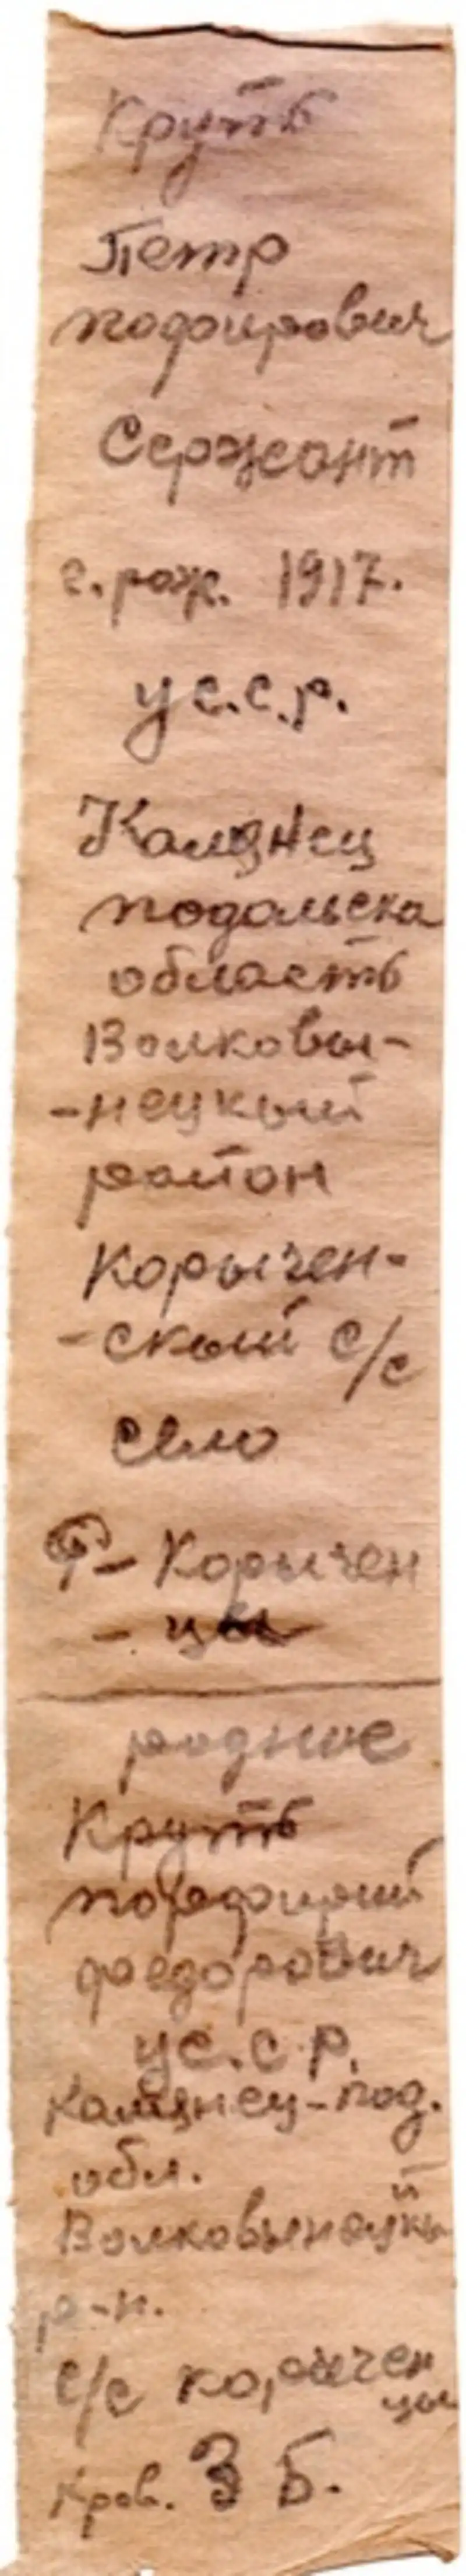 Круть
Петр
подфирович
Сержант
г. рож. 1917.
ус.с.р.
Камянец
подольска
область
Волковы-
-нецкый
район
Корычен-
-скый с/с
село
Корычен
- цы
родные
Круть
порфирий
фоедорович
ус.с.р.
Камянец-под.
обл.
Волковынецкый
р-н.
с/с корычен
цы
Кров. 3 Б.